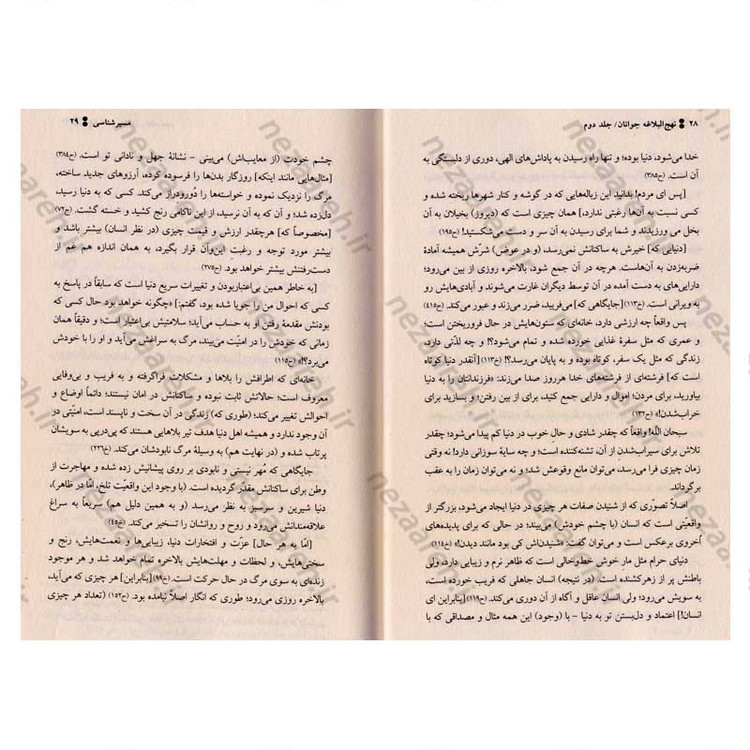 ۲۸ نهج‌البلاغه جوانان/ جلد دوم
خدا می‌شود، دنیا بوده؛ و تنها راه رسیدن به پاداش‌های الهی، دوری از دلبستگی به
آن است. (ح۳۸۵)
[پس ای مردم! بدانید این زباله‌هایی که در گوشه و کنار شهرها ریخته شده و
کسی نسبت به آن‌ها رغبتی ندارد،] همان چیزی است که (دیروز) بخیلان به آن
بخل می ورزیدند و شما برای رسیدن به آن سر و دست می‌شکستید! (ح۱۹۵)
[دنیایی که] خیرش به ساکنانش نمی‌رسد، (و در عوض) شرّش همیشه آمادهٔ
ضربه‌زدن به آن‌هاست. هرچه در آن جمع شود، بالاخره روزی از بین می‌رود؛
دارایی‌های به دست آمده در آن توسط دیگران غارت می‌شوند و آبادی‌هایش رو
به ویرانی است. (خ۱۱۳) [جایگاهی که] می‌فریبد، ضرر می‌زند و عبور می‌کند. (ح۴۱۵)
پس واقعاً چه ارزشی دارد، خانه‌ای که ستون‌هایش در حال فروریختن است؛
و عمری که مثل سفرهٔ غذایی خورده شده و تمام می‌شود؟! و چه لذّتی دارد،
زندگی که مثل یک سفر، کوتاه بوده و به پایان می‌رسد.؟! (خ۱۱۳) [آنقدر دنیا کوتاه
است که] فرشته‌ای از فرشته‌های خدا هرروز صدا می‌زند: «فرزندانتان را به دنیا
بیاورید، برای مردن؛ اموال و دارایی جمع کنید، برای از بین رفتن؛ و بسازید برای
خراب‌شدن!» (ح۱۳۲)
سبحان الله! واقعاً که چقدر شادی و حالِ خوب در دنیا کم پیدا می‌شود؛ چقدر
تلاش برای سیراب‌شدنِ از آن، تشنه‌کننده است؛ و چه سایهٔ سوزانی دارد! نه وقتی
زمان چیزی فرا می‌رسد، می‌توان مانع وقوعش شد؛ و نه می‌توان زمان را به عقب
برگرداند.
اصلاً تصوّری که از شنیدن صفات هر چیزی در دنیا ایجاد می‌شود، بزرگتر از
واقعیّتی است که انسان (با چشم خودش) می‌بیند؛ در حالی که برای پدیده‌های
اُخروی برعکس است و می‌توان گفت: «شنیدن‌اش کی بود مانند دیدن!» (خ۱۱۴)
دنیای حرام مثل مار خوش خط‌وخالی است که ظاهر نرم و زیبایی دارد، ولی
باطنش پر از زهرکشنده است. (در نتیجه) انسان جاهلی که فریب خورده است،
به سویش می‌رود؛ ولی انسانِ عاقل و آگاه از آن دوری می‌کند. (ح۱۱۹) [بنابراین ای
انسان!] اعتماد و دل‌بستن تو به دنیا – با (وجود) این همه مثال و مصداقی که با
مسیرشناسی ۲۹
چشم خودت (از معایب‌اش) می‌بینی – نشانهٔ جهل و نادانی تو است. (ح۳۸۴)
[مثال‌هایی مانند اینکه] روزگار بدن‌ها را فرسوده کرده، آرزوهای جدید ساخته،
مرگ را نزدیک نموده و خواسته‌ها را دُورودراز می‌کند. کسی که به دنیا رسید،
دل‌زده شد؛ و آن که به آن نرسید، از این ناکامی رنج کشید و خسته گشت. (ح۷۲)
[مخصوصاً که] هرچقدر ارزش و قیمت چیزی (در نظر انسان) بیشتر باشد و
بیشتر مورد توجه و رغبتِ این‌وآن قرار بگیرد، به همان اندازه هم غم از
دست‌رفتنش بیشتر خواهد بود. (ح۲۷۵)
[به خاطر همین بی‌اعتباربودن و تغییرات سریع دنیا است که سابقاً در پاسخ به
کسی که احوال من را جویا شده بود، گفتم:] «چگونه خواهد بود حال کسی که
بودنش مقدمهٔ رفتن او به حساب می‌آید؛ سلامتیش بی‌اعتبار است؛ و دقیقاً همان
زمانی که خودش را در امنیّت می‌بیند، مرگ به سراغش می‌آید و او را با خودش
می‌برد؟!» (ح۱۱۵)
خانه‌ای که اطرافش را بلاها و مشکلات فراگرفته و به فریب و بی‌وفایی
معروف است؛ حالاتش ثابت نبوده و ساکنانش در امان نیستند؛ دائماً اوضاع و
احوالش تغییر می‌کند؛ (طوری که) زندگی در آن سخت و ناپسند است، امنیّتی در
آن وجود ندارد و همیشه اهل دنیا هدف تیر بلاهایی هستند که پی‌درپی به سویشان
پرتاب شده و (در نهایت هم) به وسیلهٔ مرگ نابودشان می‌کند. (خ۲۲۶)
جایگاهی که مُهر نیستی و نابودی بر روی پیشانیش زده شده و مهاجرت از
وطن برای ساکنانش مقدّر گردیده است. (با وجود این واقعیّت تلخ، امّا در ظاهر)،
دنیا شیرین و سرسبز به نظر می‌رسد (و به همین دلیل هم) سریعاً به سراغ
علاقه‌مندانش می‌رود و روح و روانشان را تسخیر می‌کند. (خ۴۵)
[امّا به هر حال] عزّت و افتخارات دنیا، زیبایی‌ها و نعمت‌هایش، رنج و
سختی‌هایش، و لحظات و مهلت‌هایش بالاخره تمام خواهد شد و هر موجود
زنده‌ای به سوی مرگ در حال حرکت است. (خ۹۹) [بنابراین] هر چیزی که می‌آید،
بالاخره روزی می‌رود؛ طوری که انگار اصلاً نیامده بود. (ح۱۵۲) (تعداد هر چیزی
nezaareh.ir